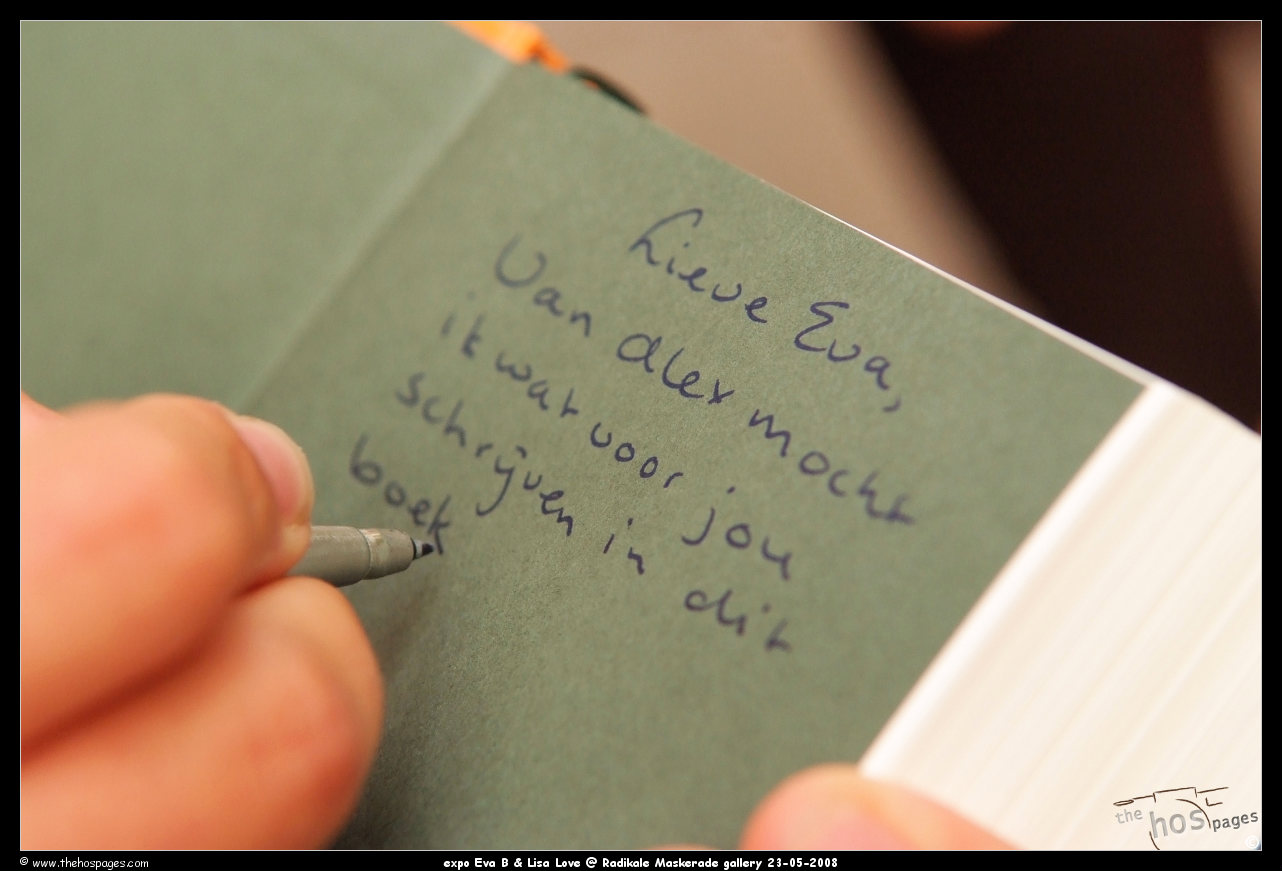 Lieve Eva,
Van Alex mocht
ik wat voor jou
schrijven in dit
boek
the hos pages
© www.thehospages.com
expo Eva B & Lisa Love @ Radikale Maskerade gallery 23-05-2008